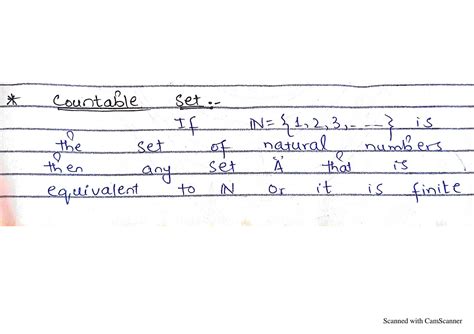 * Countable Set :-
If IN = {1, 2, 3, ----} is
the set of natural numbers
then any set 'A' that is
equivalent to IN or it is finite
Scanned with CamScanner